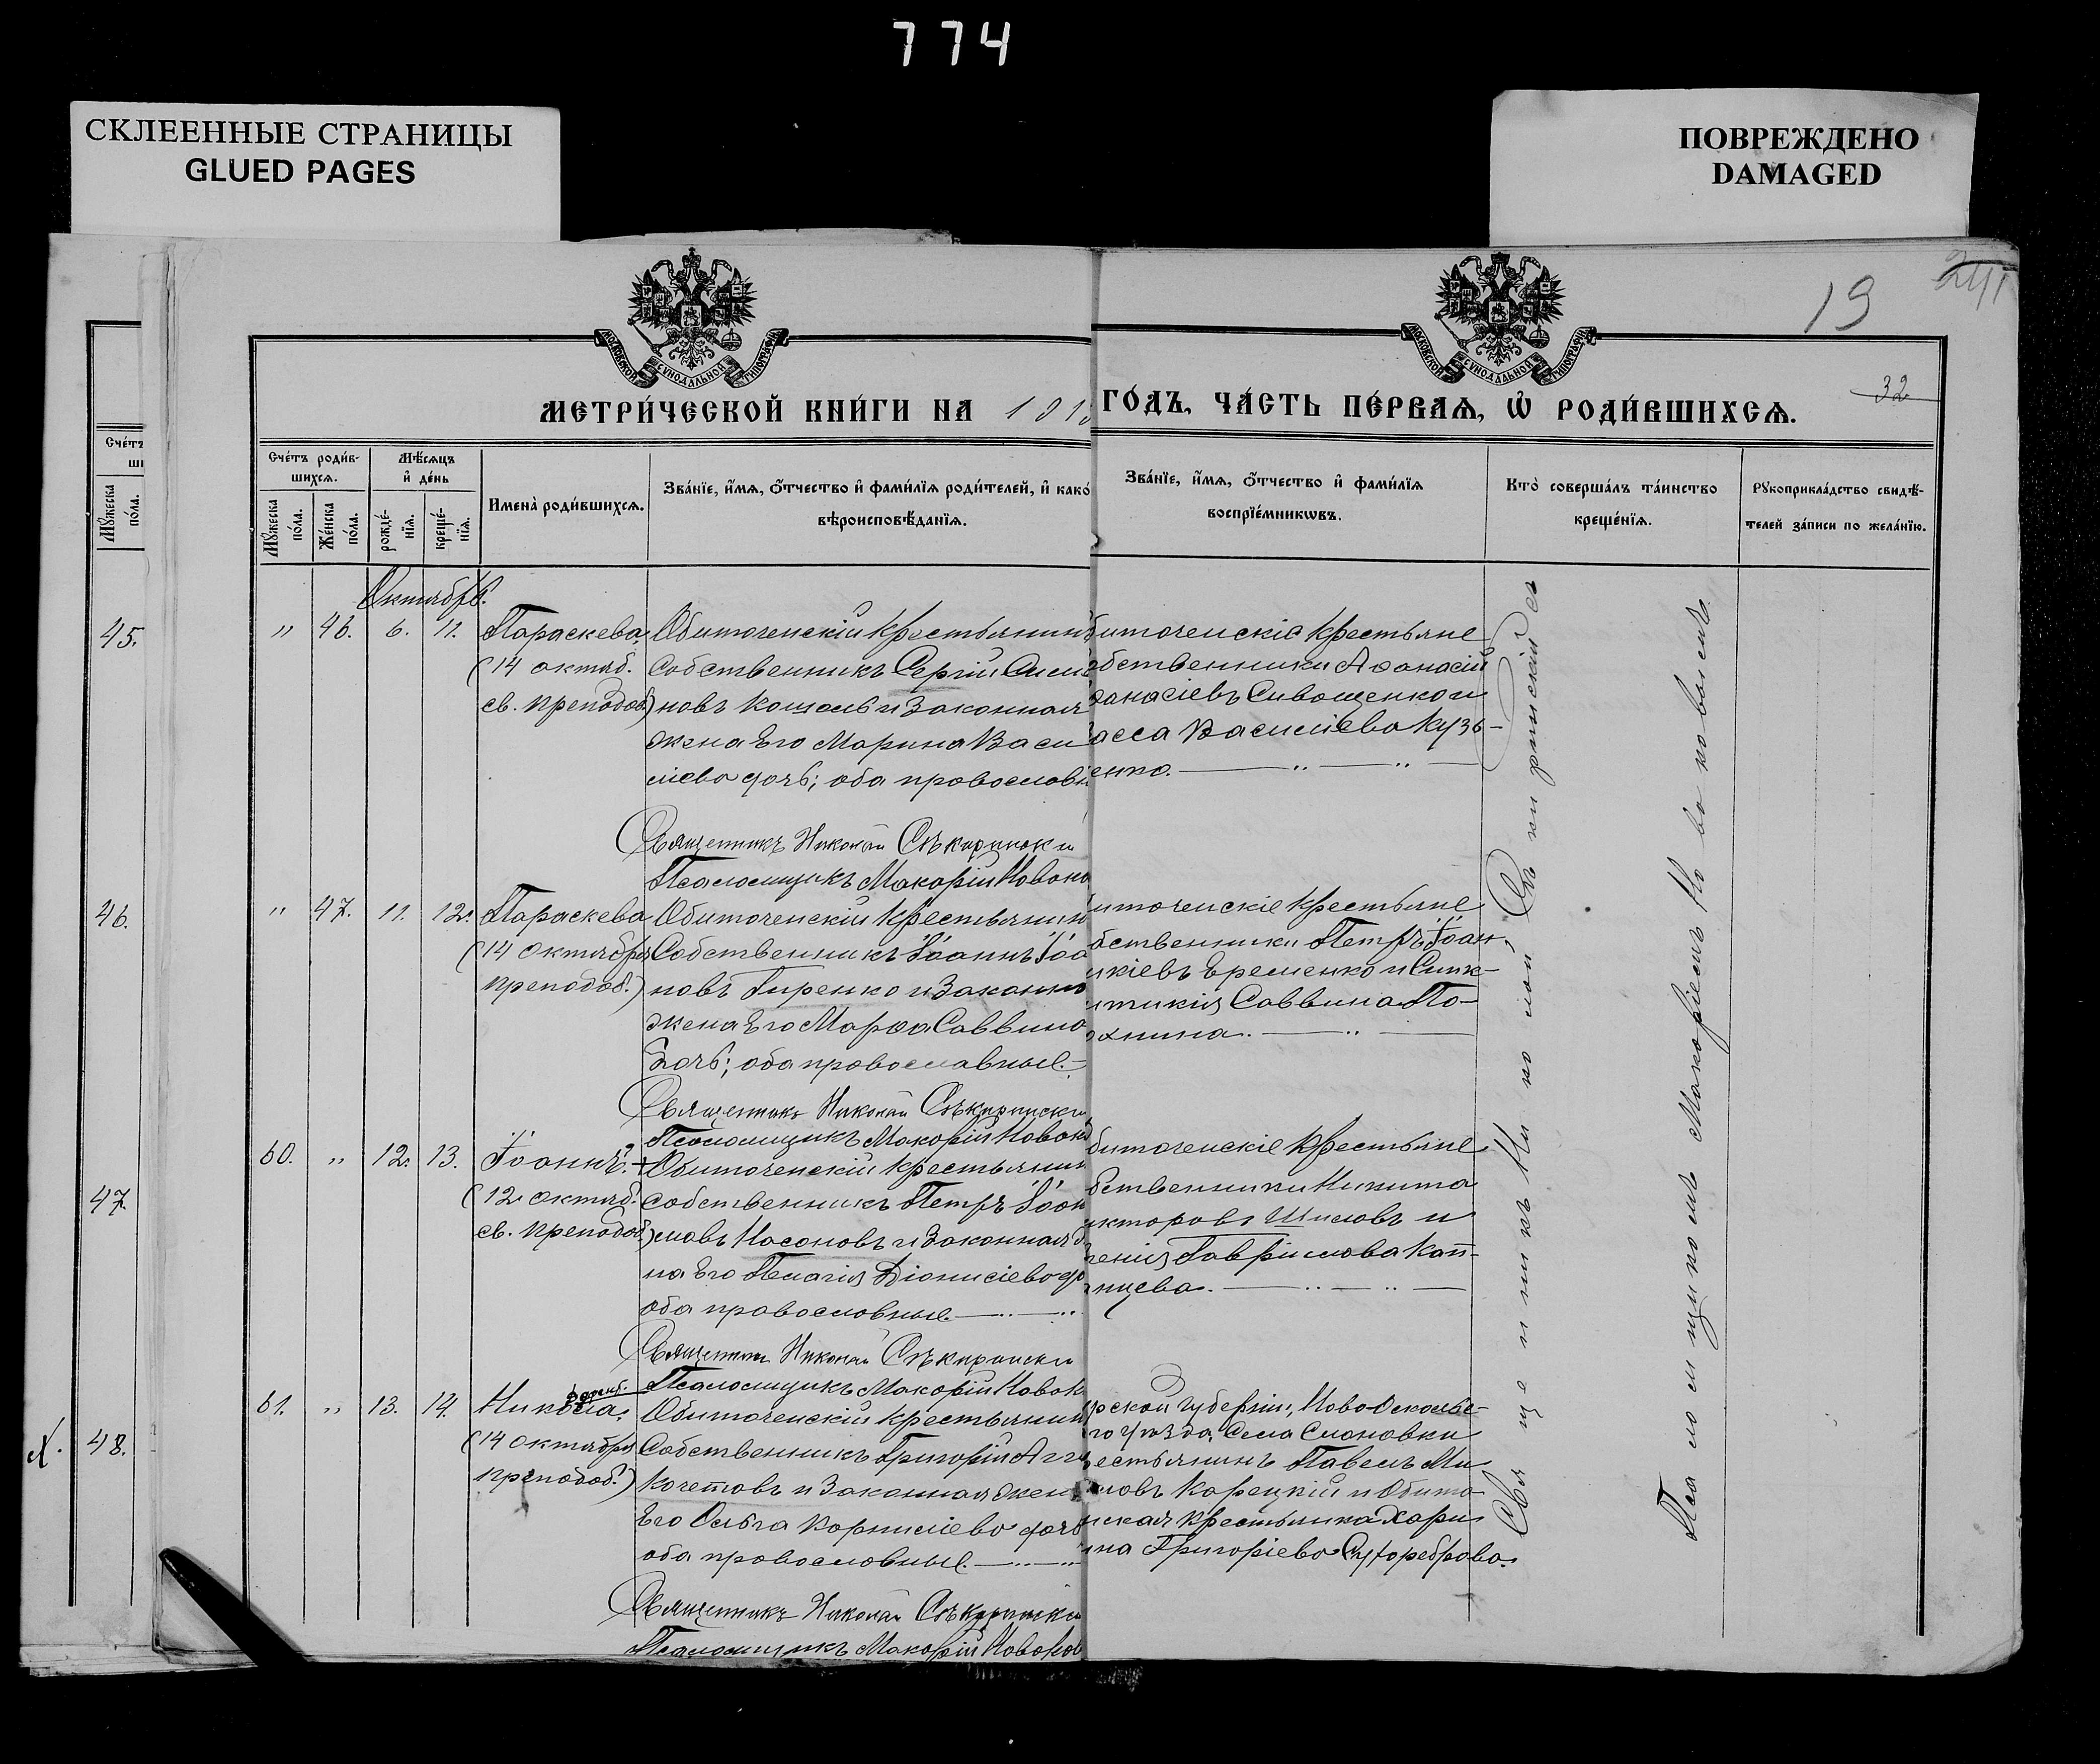 774
СКЛЕЕННЫЕ СТРАНИЦЫ
GLUED PAGES
ПОВРЕЖДЕНО
DAMAGED
19
32
МОСКОВСКОЙ СѴНОДАЛЬНОЙ ТИПОГРАФІИ
МОСКОВСКОЙ СѴНОДАЛЬНОЙ ТИПОГРАФІИ
МЕТРИ́ЧЕСКОЙ КНИ́ГИ НА 191
ГО́ДЪ, ЧА́СТЬ ПЕ́РВАѦ, Ѡ҆ РОДИ́ВШИХСѦ.
Сче́тъ
Мꙋ́жеска по́ла.
45.
46.
47.
48.
Сче́тъ роди́в-
шихсѧ.
Мꙋ́жеска по́ла.
Же́нска по́ла.
Мѣ́сѧцъ
и҆ де́нь
рожде́-
нїѧ.
креще́-
нїѧ.
Имена̀ роди́вшихсѧ.
Зва́нїе, и҆́мѧ, ѻ҆́тчество и҆ фами́лїѧ роди́телей, и҆ како́
вѣроисповѣ́данїѧ.
Зва́нїе, и҆́мѧ, ѻ҆́тчество и҆ фами́лїѧ
воспрїе́мникѡвъ.
Кто̀ соверша́лъ та́инство
креще́нїѧ.
Рꙋкоприкла́дство свидѣ́-
телей за́писи по жела́нїю.
Октябрь.
" 46. 6. 11.
Параскева
(14 октяб.
св. преподоб.)
Обиточенскій крестьянинъ
собственникъ Сергій Сим
новъ Кошель и законная
жена Его Марина Васи
лiева дочь; оба православн
биточенскіе крестьяне
бственники Аѳанасій
ѳанасіевъ Сивощенко и
асса Василіева Кузь-
енко.
Священникъ Николай Сѣкирински
Псаломщикъ Макарій Новоко
" 47. 11. 12.
Параскева
(14 октября
преподоб.)
Обиточенскій крестьянин
Собственникъ Іоаннъ Іоа
новъ Гиренко и законна
жена Его Марѳа Саввина
дочь; оба православные.
иточенскіе крестьяне
бственники Петръ Іоан
икіевъ Еременко и Синк-
итикія Саввина По-
охнина.
Священникъ Николай Сѣкирински
Псаломщикъ Макарій Новоко
60. " 12. 13.
Іоаннъ.
(12 октяб.
св. преподоб.)
Обиточенскій крестьянин
собственникъ Петръ Іоан
новъ Насоновъ и законная
на Его Пелагія Діонисіева до
оба православные
биточенскіе крестьяне
бственники Никита
икторовъ Шиловъ и
генія Гавріилова Кап-
нцева.
Священникъ Николай Сѣкирински
Псаломщикъ Макарій Новок
61. " 13. 14.
Никола
(14 октября
преподоб.)
Обиточенскій крестьянин
Собственникъ Григорій Агг
Кочетовъ и законная жен
Его Ольга Корниліева дочь
оба православные.
рской губерніи, Ново-Оскольс-
го уѣзда, Села Слоновки
естьянинъ Павелъ Ми
ловъ Корецкій и Обито
нская крестьянка Хари
ина Григоріева Сухореброва.
Священникъ Николай Сѣкирински
Псаломщикъ Макарій Новоков
Священникъ Николай Сѣкиринскій съ
Псаломщикомъ Макаріемъ Новаковымъ